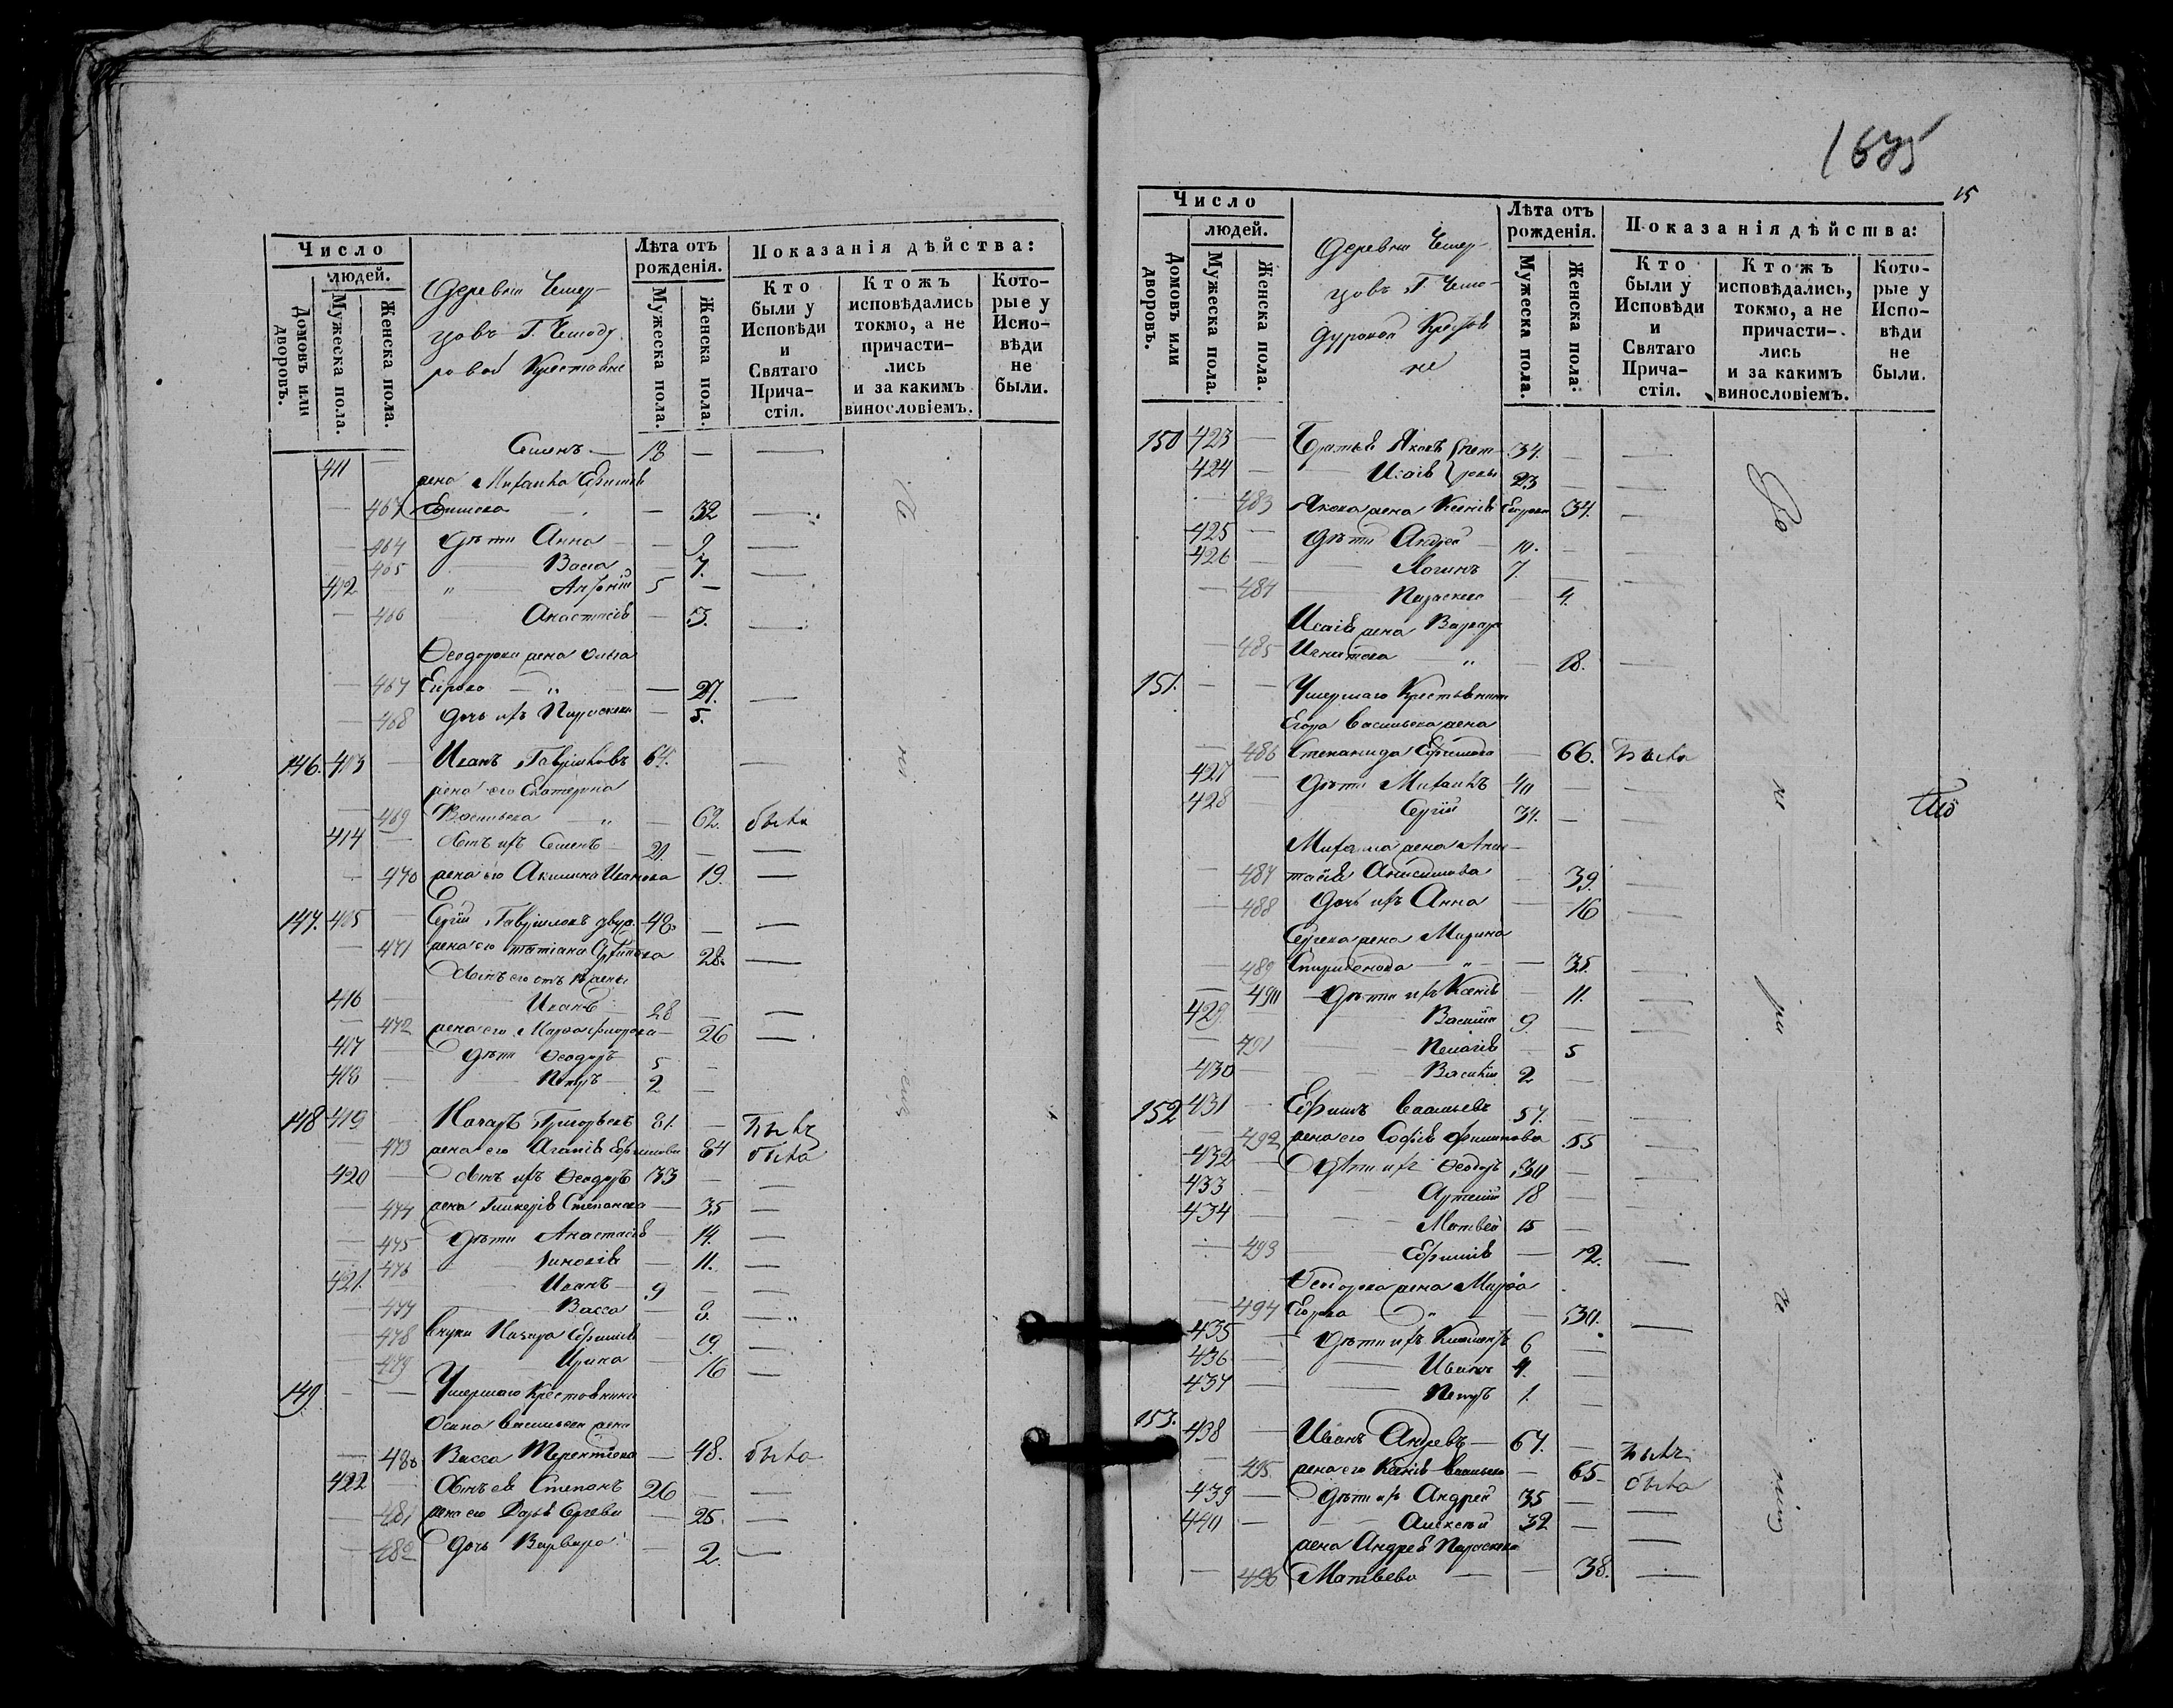 Число
людей.
Домовъ или дворовъ.
Мужеска пола.
Женска пола.
Деревни
Г.
Лѣта отъ рожденія.
Мужеска пола.
Женска пола.
Показанія дѣйства:
Кто были у Исповѣди и Святаго Прича-стія.
Ктожъ исповѣдались токмо, а не причасти-лись и за какимъ винословіемъ.
Кото-рые у Испо-вѣди не были.
411 — Семенъ — 18 —
жена Михаила
— 32
464 дѣти Анна — 9
465 Васса — 7.
412 5 —
466 Анастасія — 3.
Ѳеодорова жена
467 Егорова — 27.
468 дочь ихъ Параскева — 5.
146. 413 — Иванъ Гавриловъ 64.
жена его Екатерина
469 Васильева — 62. была
414 — сынъ ихъ Семенъ 21. —
470 жена его Акилина Иванова 19.
147. 415 — Сергій Гавриловъ 48. —
471 жена его Татіана 28.
сынъ его отъ жены
416 Иванъ 28 —
472 жена его Марѳа 26
417 дѣти Ѳеодоръ 5 —
418 Петръ 2 —
148 419 Назаръ Григорьевъ 81. — былъ
473 жена его Агапія Ефимова 84 была
420 — сынъ ихъ Ѳеодоръ 33 —
474 жена Гликерія Степанова — 35
475 дѣти Анастасія — 14.
476 — 11.
421. Иванъ 9 —
477 Васса — 8.
478 внуки Назара Ефимія — 19.
479 Ирина — 16
149. — — Умершаго Крестьянина
Осипа Васильева жена
480 Васса Терентіева — 48. была
422 — сынъ ея Степанъ 26 —
481 жена его Дарья Сергѣева — 25.
482 дочь Варвара — 2.
1675
15
Число
людей.
Домовъ или дворовъ.
Мужеска пола.
Женска пола.
Деревни
Г.
Лѣта отъ рожденія.
Мужеска пола.
Женска пола:
Показанія дѣйства:
Кто были у Исповѣди и Святаго Прича-стія.
Ктожъ исповѣдались, токмо, а не причасти-лись и за какимъ винословіемъ.
Кото-рые у Испо-вѣди не были.
150 423 — Братья Яковъ 34. —
424 — Исаія 23 —
483 Якова жена Ксенія 34.
425 — дѣти Андрей 10. —
426 — Логинъ 7. —
484 Параскева — 4.
Исаія жена Варвара
485 Игнатова — 18.
151. — — Умершаго Крестьянина
Егора Васильева жена
486 Степанида Ефимова — 66. была
427 — дѣти Михаилъ 40 —
428 Сергій 34. —
Михаила жена Анас-
487 тасія Анисимова — 39.
488 дочь ихъ Анна — 16
Сергея жена Марина
489 Спиридонова — 35.
490 дѣти ихъ Ксенія — 11.
429 Василій 9. —
491 Пелагія — 5
430 Василій 2 —
152 431 Ефимъ Васильевъ 57. —
492 жена его Софія Филипова 55
432 дѣти ихъ Ѳеодоръ 30 —
433 Артемій 18 —
434 Матвей 15 —
493 Ефимія — 12.
Ѳеодора жена Марѳа
494 Егорова — 30.
435 дѣти ихъ 6 —
436 Иванъ 4. —
437 Петръ 1. —
153. 438 — Иванъ Андреевъ 67. — былъ
495. жена его Ксенія Васильева — 65 была
439 — дѣти ихъ Андрей 35 —
440 — Алексѣй 32 —
жена Андрея Параскева
496 Матвѣева — 38.